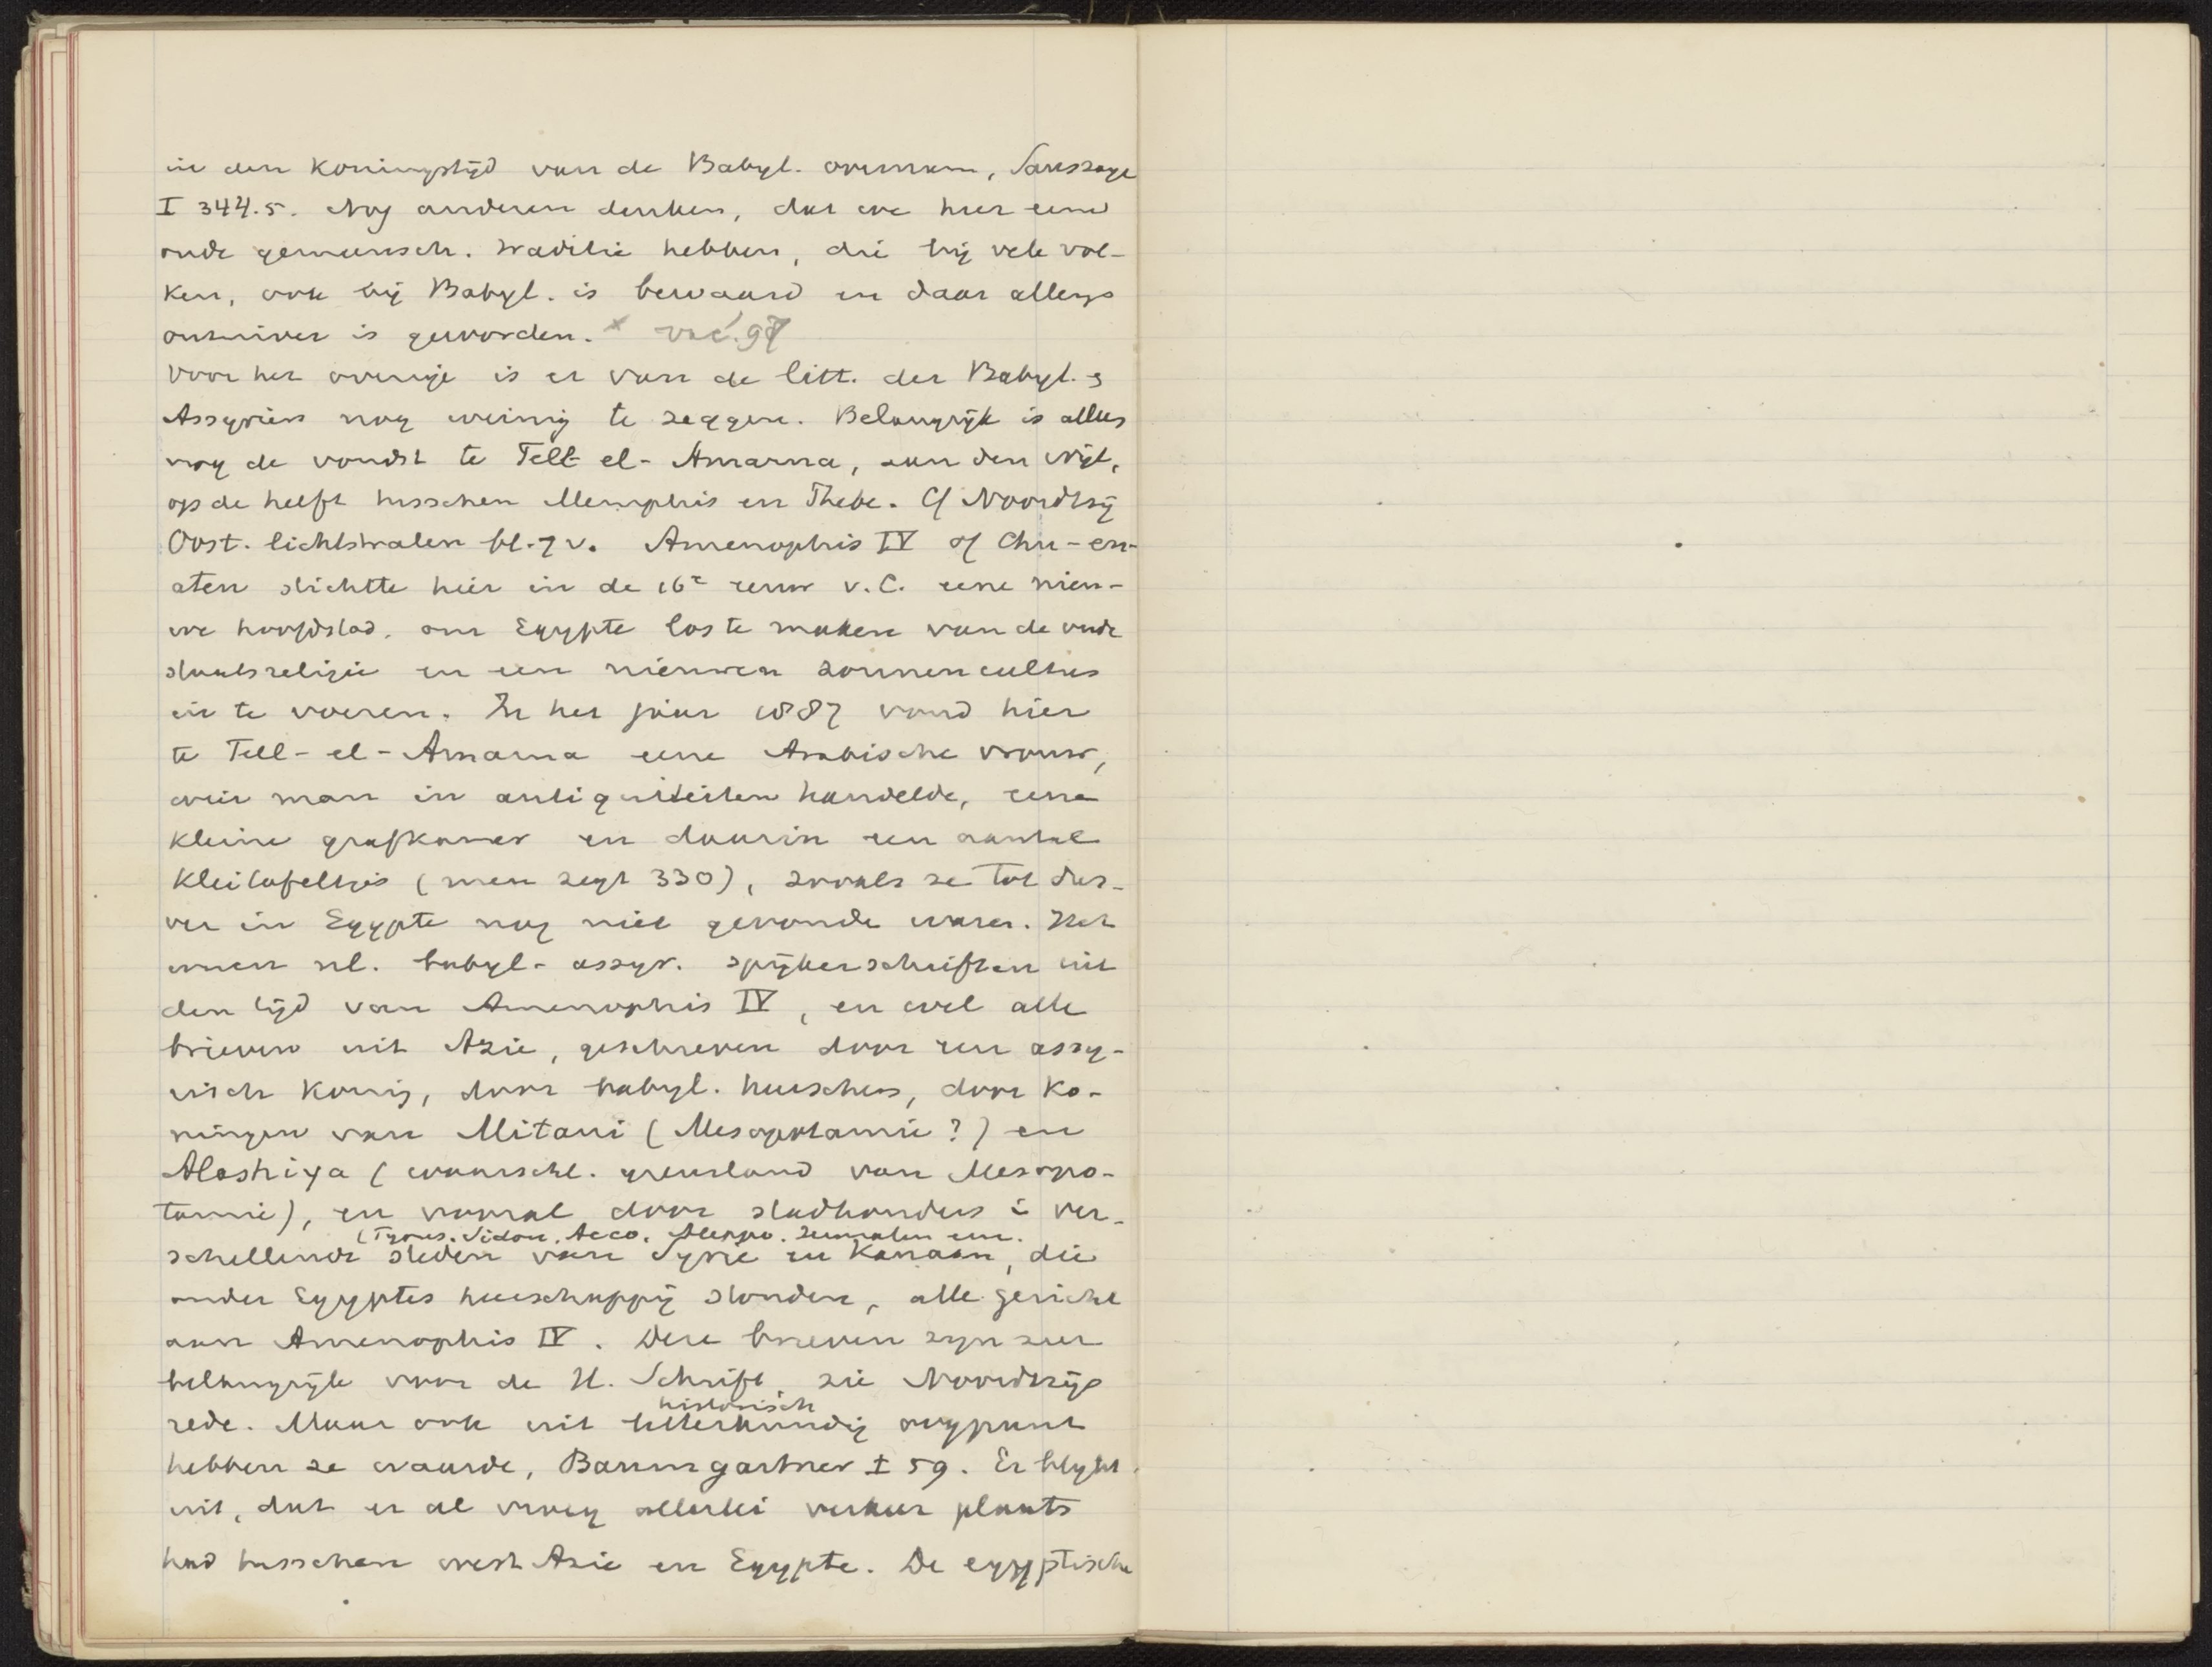 in den Koningstijd van de Babyl. overnam, Saussaye
I 344.5. Nog anderen denken, dat we hier eene
oude gemeensch. traditie hebben, die bij vele vol-
ken, ook bij Babyl. is bewaard en daar allengs
onzuiver is geworden. x
Voor het overige is er van de litt. der Babyl. &
Assyriërs nog weinig te zeggen. Belangrijk is alleen
nog de vondst te Tell el-Amarna, aan den Nijl,
op de helft tusschen Memphis en Thebe. Cf Noordtzij
Oost. lichtstralen bl. 7 v. Amenophis IV of Chu-en-
aten stichtte hier in de 16e eeuw v.C. eene nieu-
we hoofdstad, om Egypte los te maken van de oude
staatsreligie en een nieuwen zonnencultus
in te voeren. In het jaar 1887 vond hier
te Tell-el-Amarna eene Arabische vrouw,
wier man in antiquiteiten handelde, eene
kleine grafkamer en daarin een aantal
kleitafeltjes (men zegt 330), zooals ze tot dus-
ver in Egypte nog niet gevonden waren. Het
waren nl. babyl-assyr. spijkerschriften uit
den tijd van Amenophis IV, en wel alle
brieven uit Azie, geschreven door een assy-
risch Koning, door babyl. heerschers, door Ko-
ningen van Mitani (Mesopotamie?) en
Alashiya (waarschl. grensland van Mesopo-
tamie), en vooral door stadhouders i ver-
(Tyrus. Sidon, Acco, Aleppo. Jeruzalem enz.
schillende steden van Syrie en Kanaan, die
onder Egyptes heerschappij stonden, alle gericht
aan Amenophis IV. Deze brieven zijn zeer
belangrijk voor de H. Schrift, zie Noordtzijs
historisch
rede. Maar ook uit letterkundig oogpunt
hebben ze waarde, Baumgartner I 59. Er blijkt
uit, dat er al vroeg allerlei verkeer plaats
had tusschen west Azie en Egypte. De egyptische